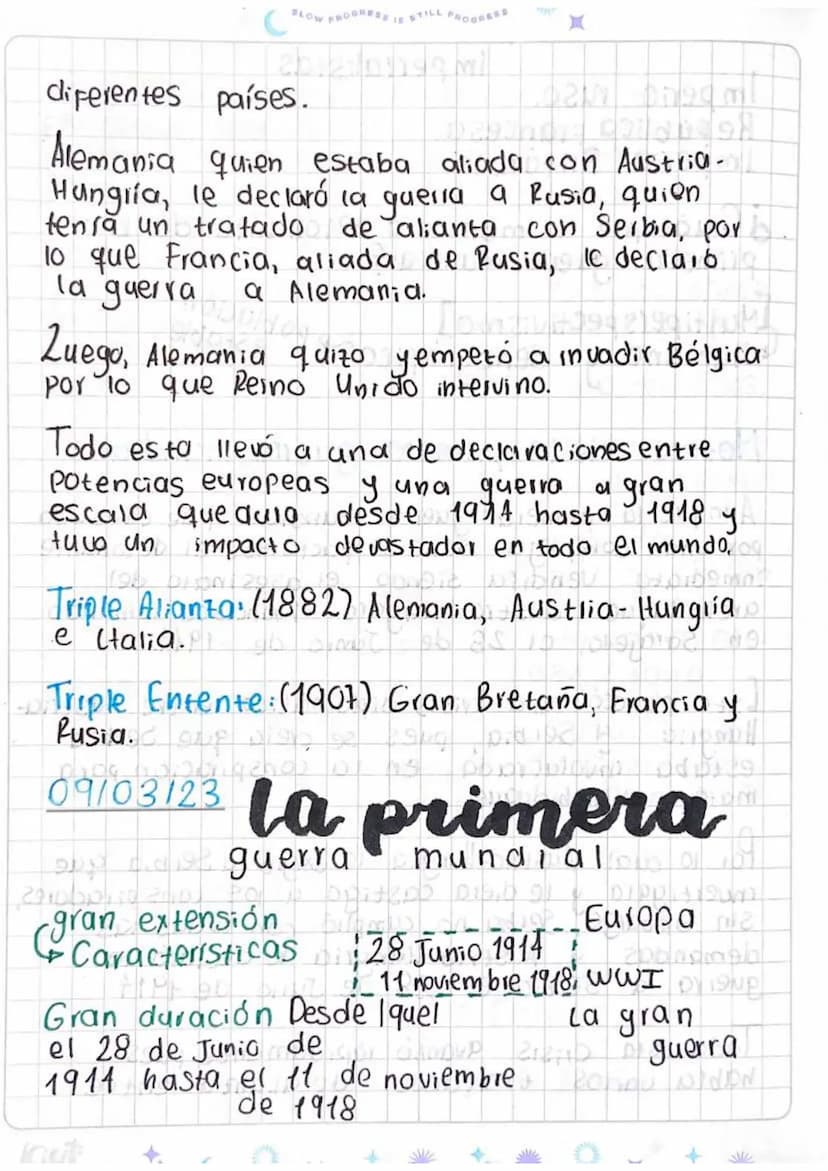 SLOW PROGRESS IS STILL PROGRESS
diferentes países.
Alemania quien estaba aliada con Austria-
Hungría, le declaró la guerra a Rusia, quien
tenía un tratado de alianta con Serbia, por
lo que Francia, aliada de Rusia, le declaró
la guerra a Alemania.
Luego, Alemania quizo y empezó a invadir Bélgica
por lo que Reino Unido intervino.
Todo esto llevó a una de declaraciones entre
potencias europeas y una guerra a gran
escala que duro desde 1914 hasta 1918 y
tuvo un impacto devastador en todo el mundo.
Triple Alianza: (1882) Alemania, Austria-Hungría
e Italia.
Triple Entente: (1907) Gran Bretaña, Francia y
Rusia.
09/03/23 la primera
guerra mundial
gran extensión Europa
Características 28 Junio 1914
11 noviembre 1918 WWI
Gran duración Desde lquel La gran
el 28 de Junio de guerra
1914 hasta el 11 de noviembre
de 1918